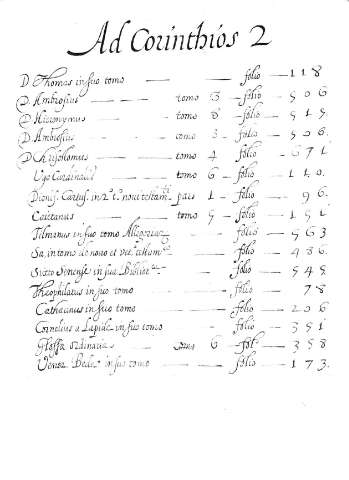 Ad Corinthios 2
D Thomas in suo tomo — folio — 118
D. Ambrosius — tomo 3 — folio — 506
D Hieronymus — tomo 8 — folio — 515
D. Ambrosius — tomo 3 — folio — 506.
D Krisostomus — tomo 4 folio — 671
Ugo Cardinalis — tomo 6 — folio — 110.
Dionis. Cartus. in 2ª noui testam pars 1 — folio — 96.
Caietanus — tomo 5 — folio — 151
Tilmanus in suo tomo Allegoriar — folio — 563
Sa, in tomo de nouo et vet. testam — folio — 486.
Sixto Senense in sua Bibliot — folio — 545
Theophilatus in suo tomo — folio — 78
Catharinus in suo tomo — folio — 206
Cornelius a Lapide in suo tomo — folio — 351
Glossa ordinaria — tomo 6 — fol. — 358
Vener. Bede in suo tomo — folio — 173.